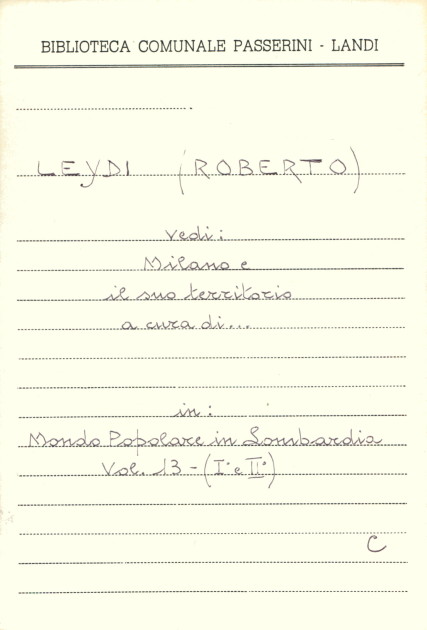 BIBLIOTECA COMUNALE PASSERINI - LANDI
LEYDI (ROBERTO)
vedi:
Milano e
il suo territorio
a cura di...
in:
Mondo Popolare in Lombardia
Vol. 13 - (I° e II°)
C